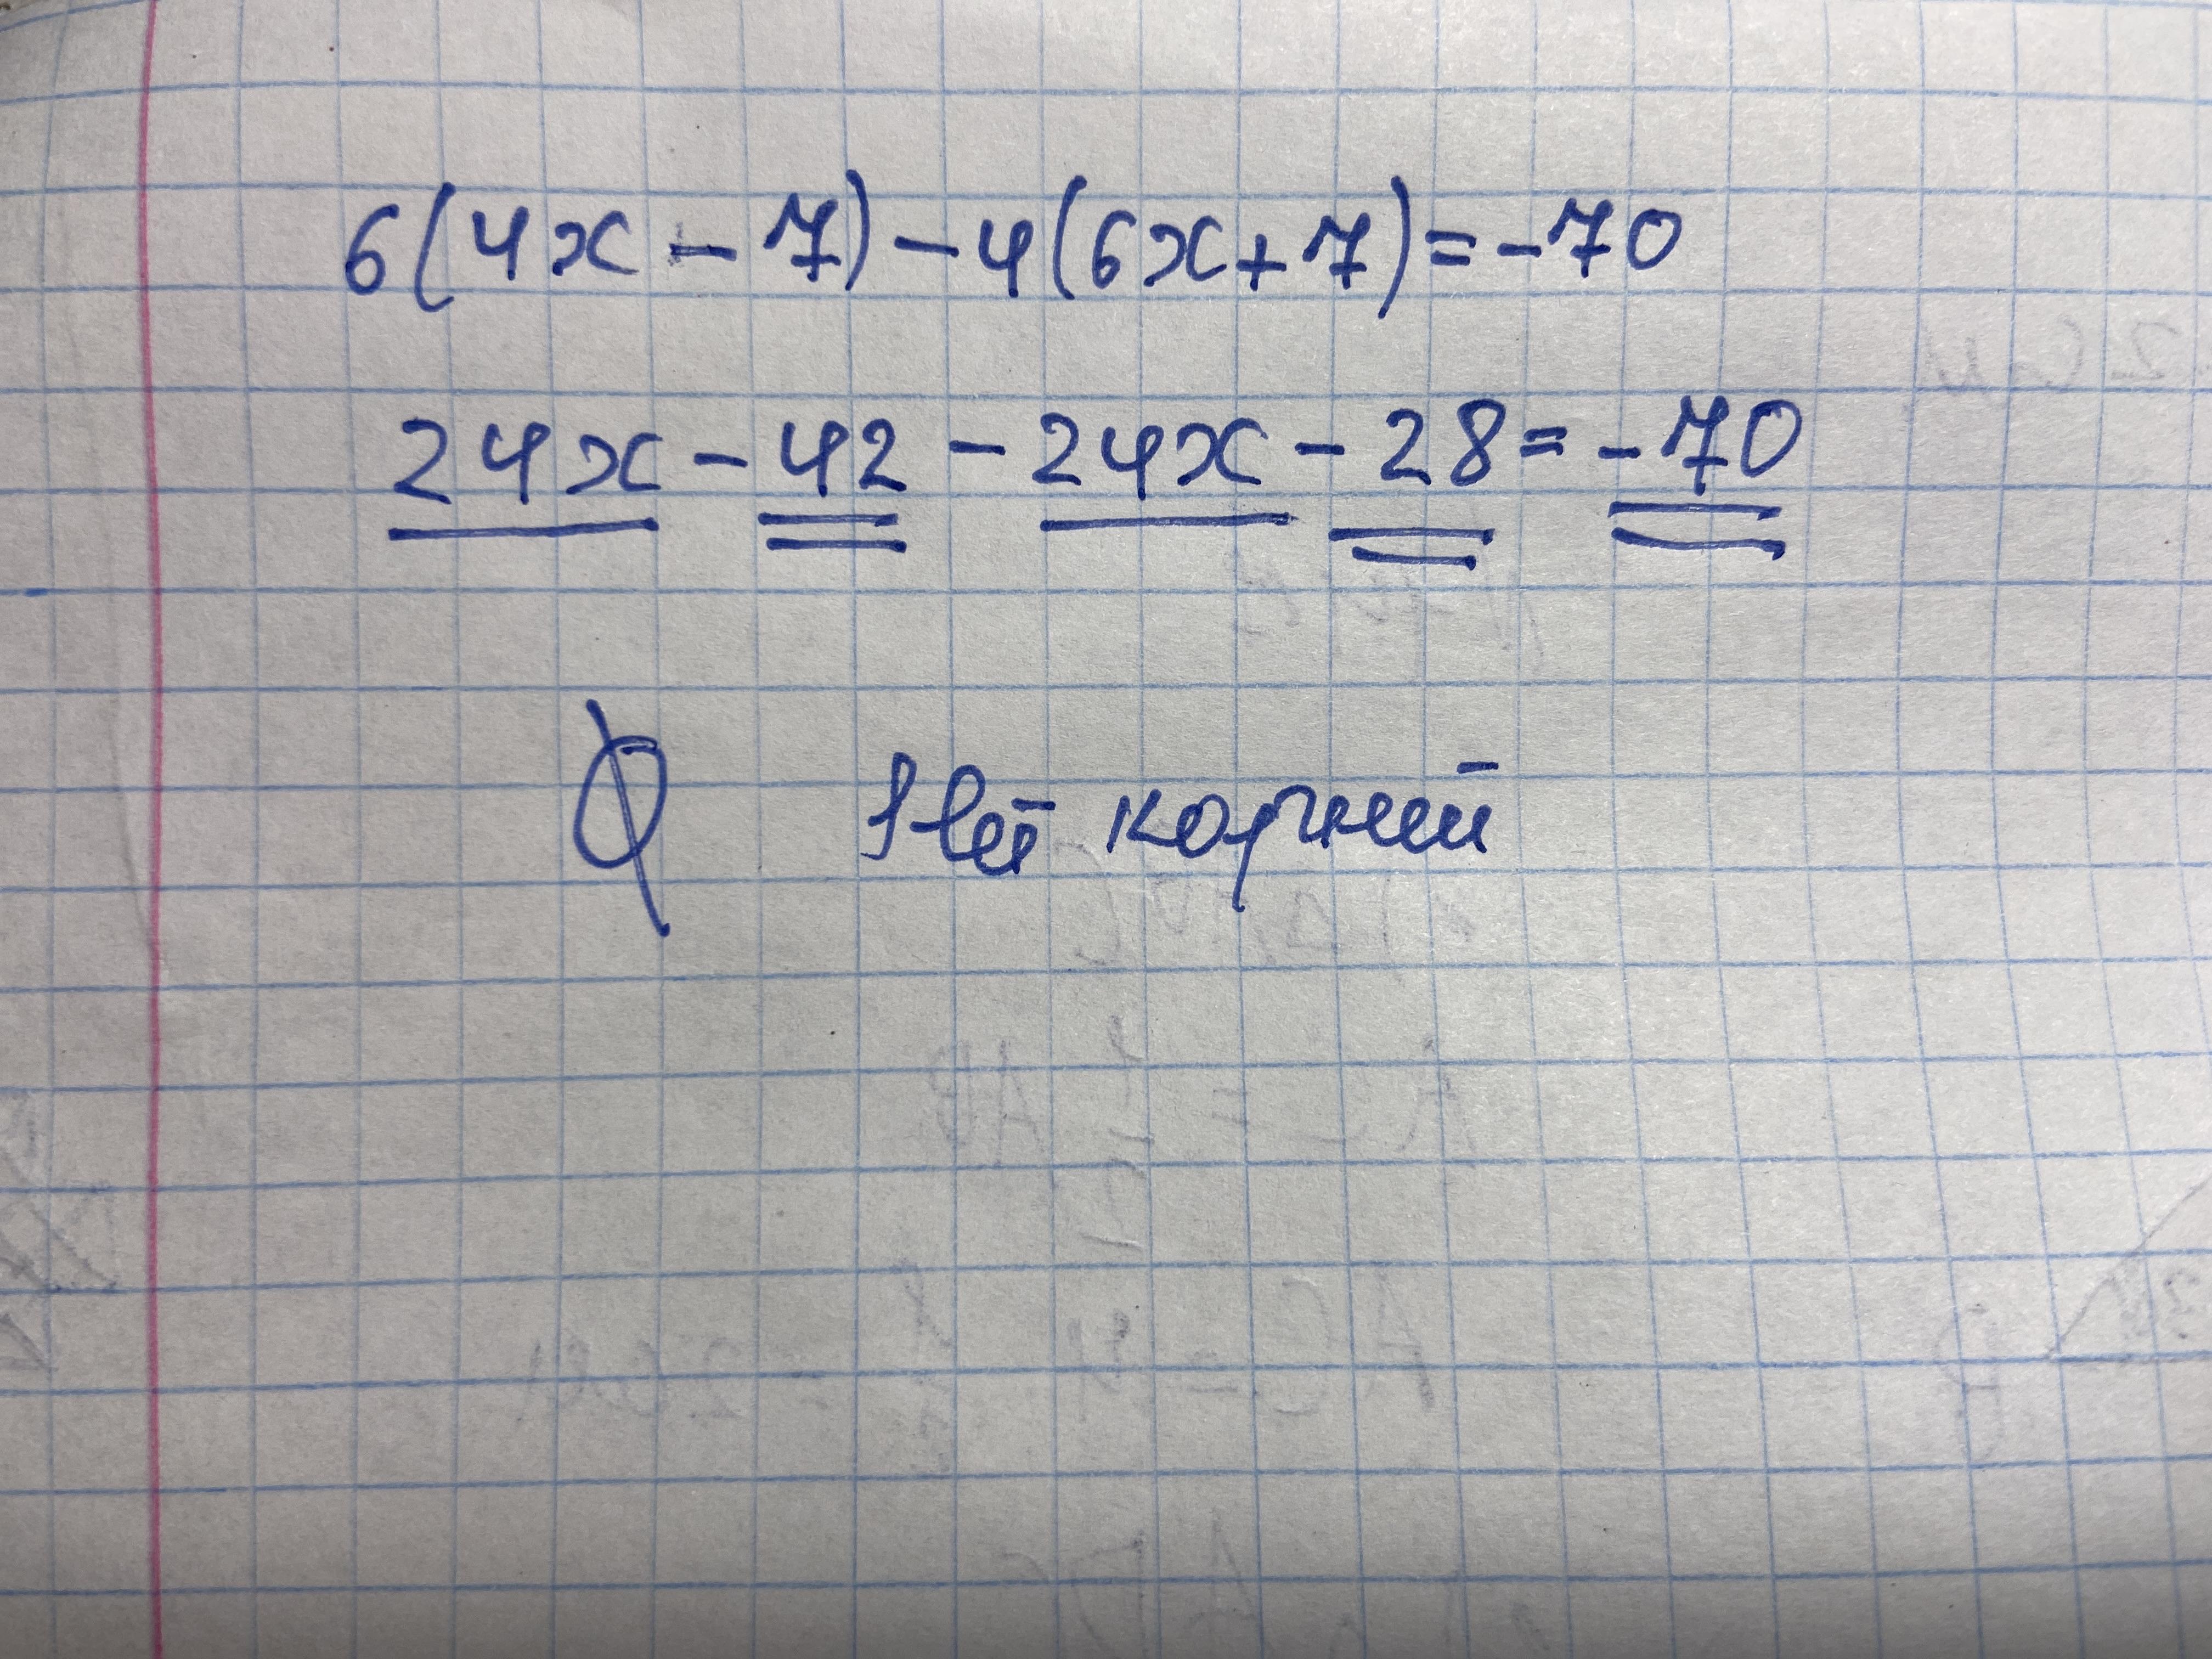 6(4x - 7) - 4(6x + 7) = -70
24x - 42 - 24x - 28 = -70
∅ Нет корней